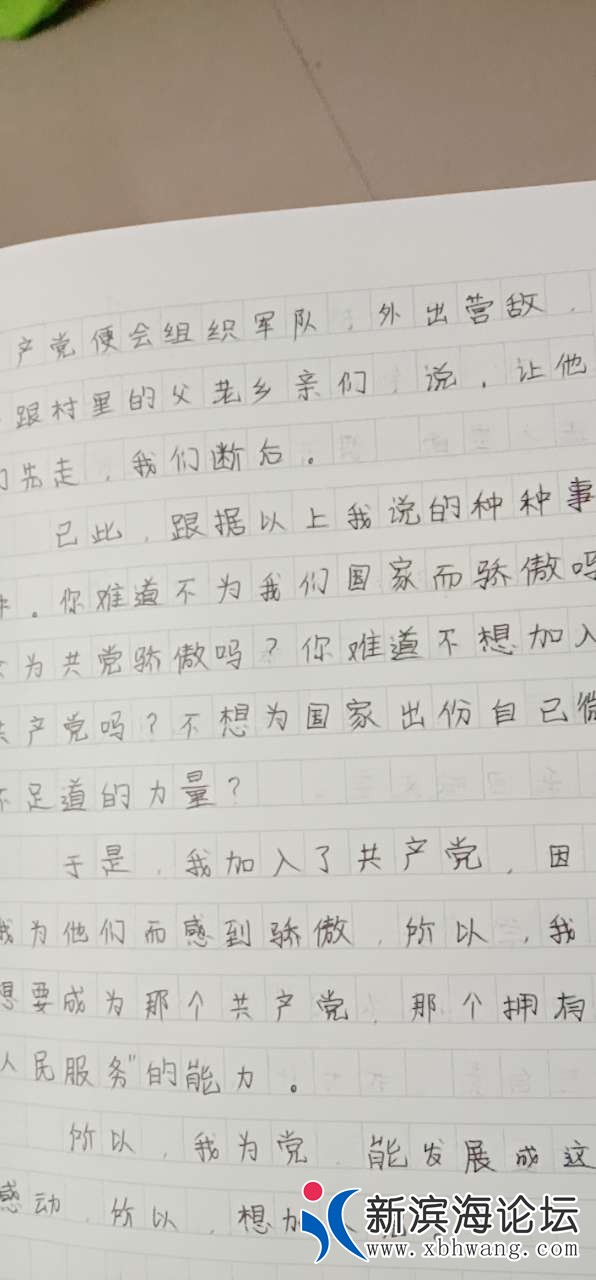 产党便会组织军队，外出营敌，
跟村里的父老乡亲们，说，让他
们先走，我们断后。
己此，跟据以上我说的种种事
件。你难道不为我们国家而骄傲吗
为共党骄傲吗？你难道不想加入
共产党吗？不想为国家出份自己微
不足道的力量？
于是，我加入了共产党，因
我为他们而感到骄傲，所以，我
想要成为那个共产党，那个拥有
人民服务”的能力。
所以，我为党，能发展成这
感动，所以，想加
新滨海论坛
www.xbhwang.com